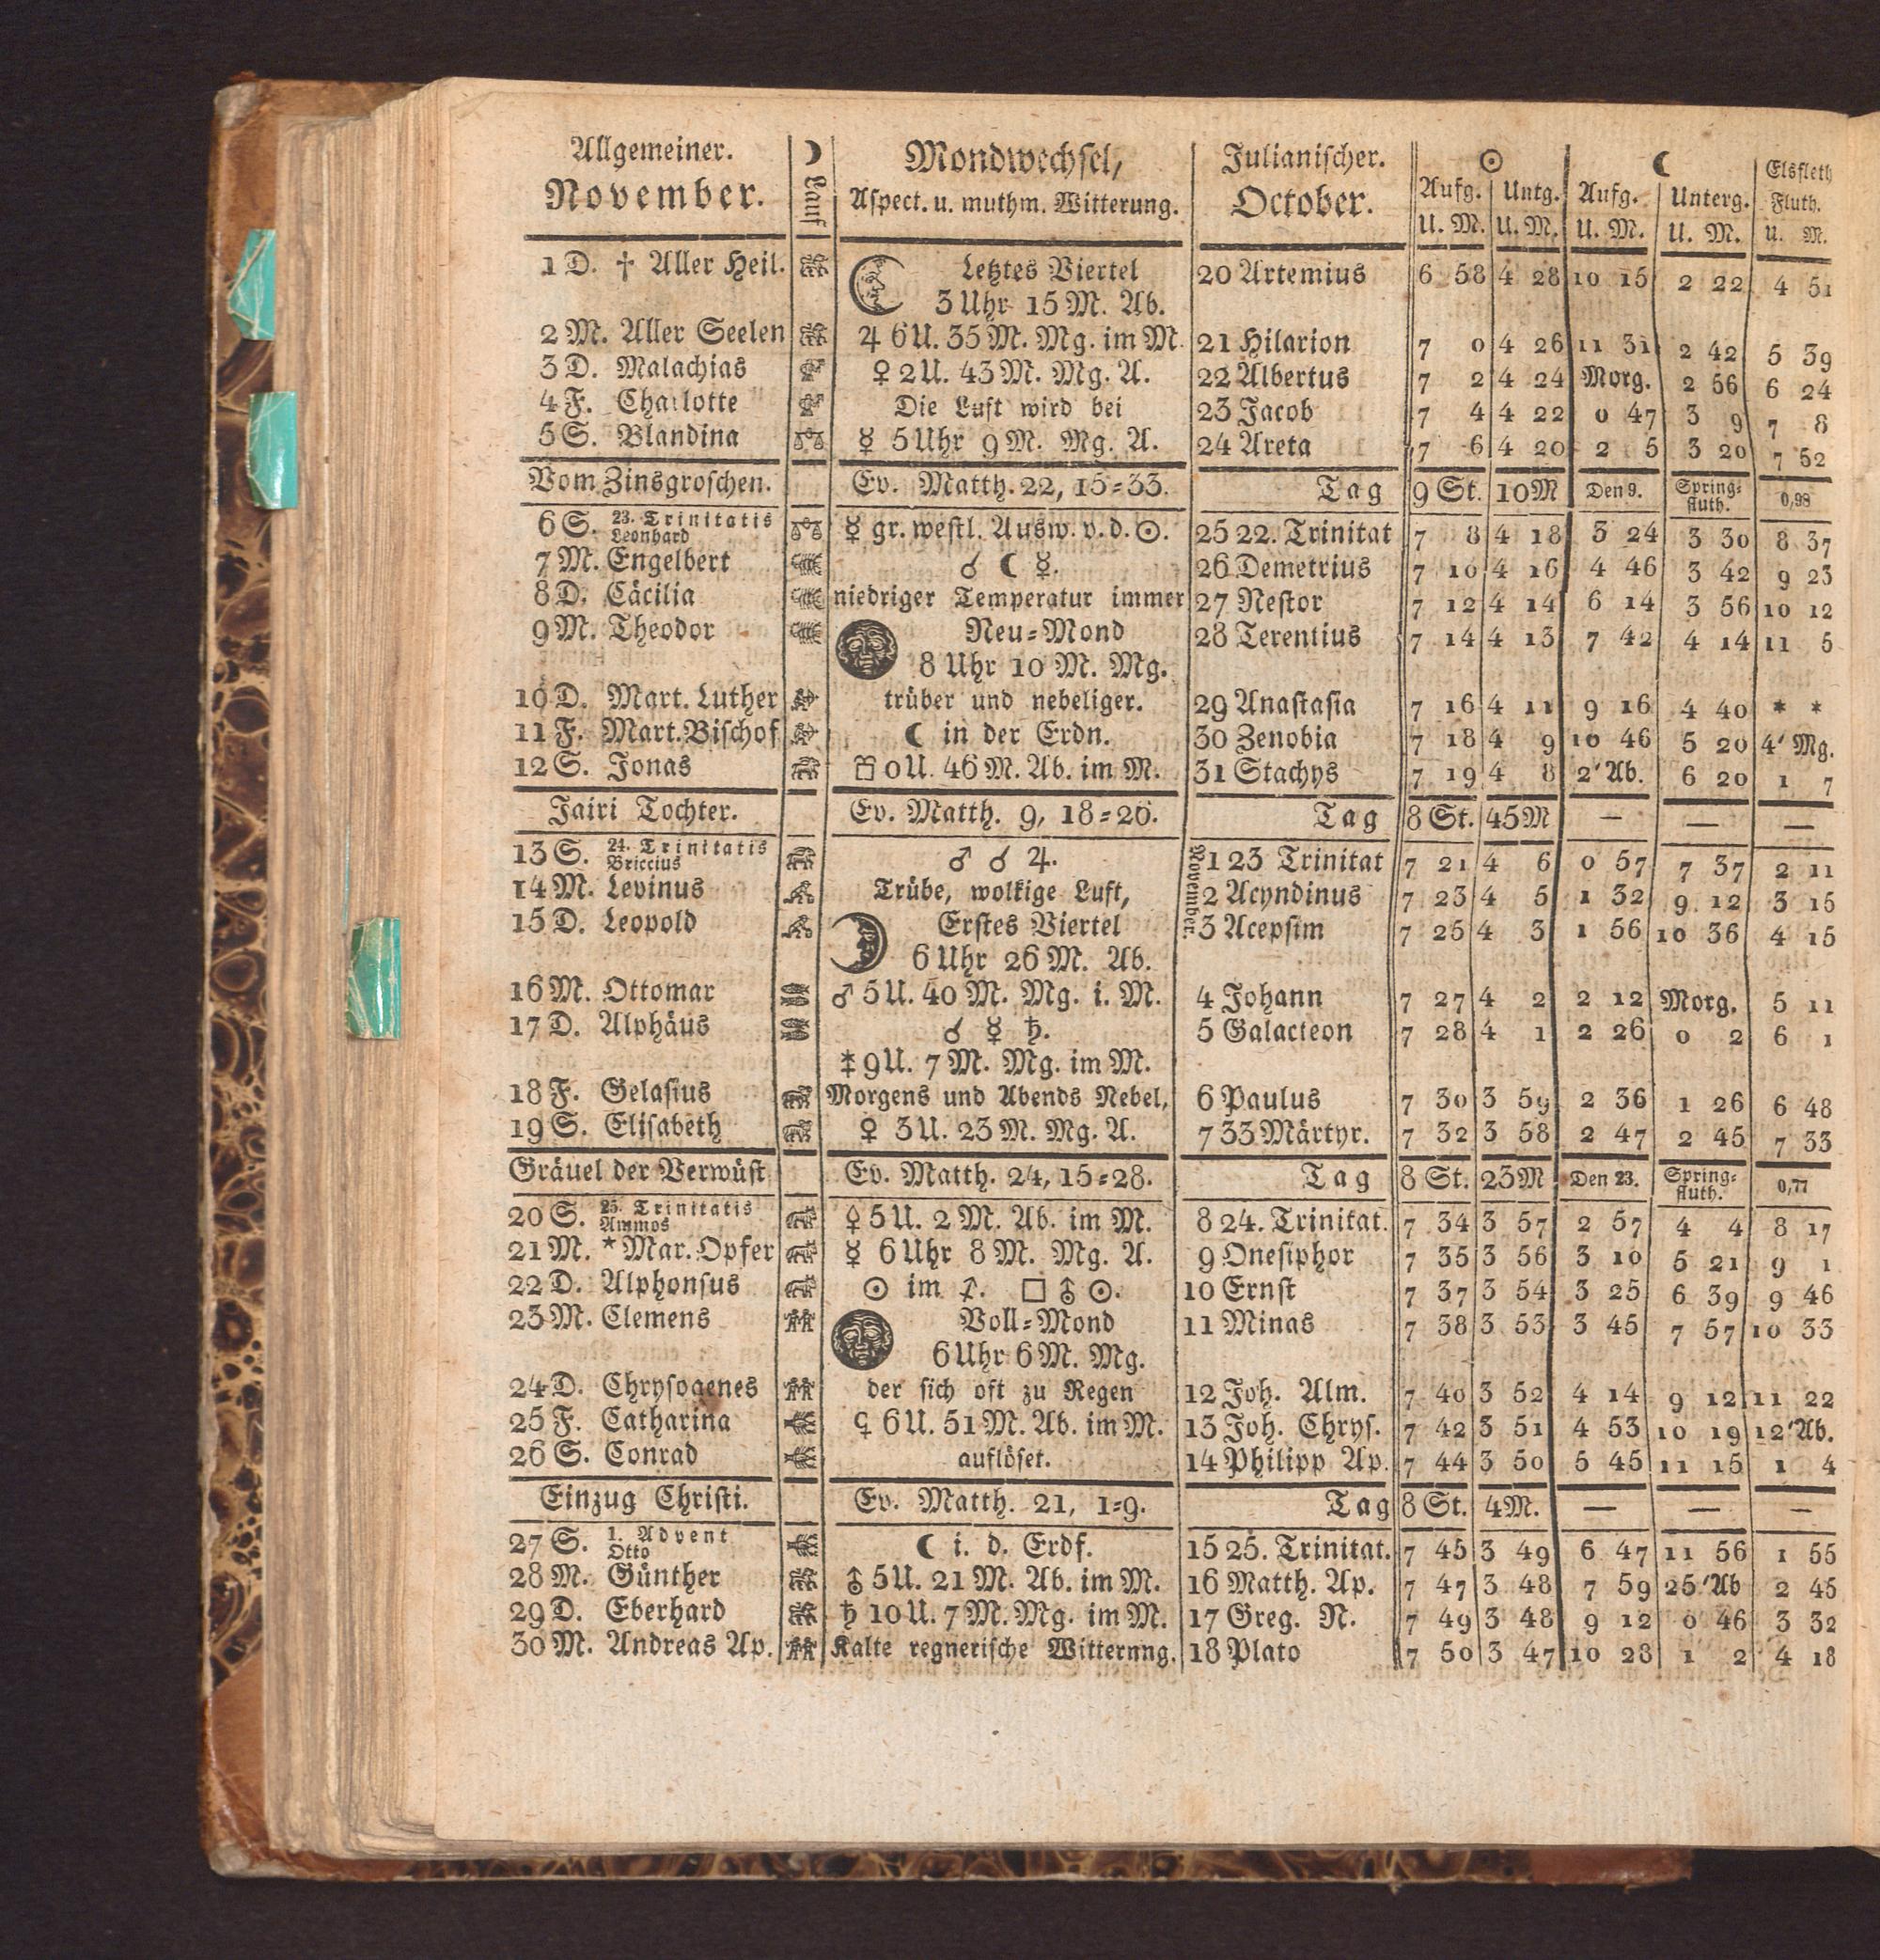 Allgemeiner. ☽ Mondwechsel, Julianischer. ☉ ☾ Elsfleth
November. Lauf Aspect. u. muthm. Witterung. October. Aufg. Untg. Aufg. Unterg. Fluth.
U. M. U. M. U. M. U. M. U. M.
1 D. † Aller Heil. Letztes Viertel 20 Artemius 6 58 4 28 10 15 2 22 4 51
3 Uhr 15 M. Ab.
2 M. Aller Seelen ♃ 6 U. 35 M. Mg. im M. 21 Hilarion 7 0 4 26 11 31 2 42 5 39
3 D. Malachias ♀ 2 U. 43 M. Mg. A. 22 Albertus 7 2 4 24 Morg. 2 56 6 24
4 F. Charlotte Die Luft wird bei 23 Jacob 7 4 4 22 0 47 3 9 7 8
5 S. Blandina ☿ 5 Uhr 9 M. Mg. A. 24 Areta 7 6 4 20 2 5 3 20 7 52
Vom Zinsgroschen. Ev. Matth. 22, 15=33. Tag 9 St. 10 M Den 9. Spring=fluth. 0,98
6 S. 23. Trinitatis Leonhard ☿ gr. westl. Ausw. v. d. ☉. 25 22. Trinitat 7 8 4 18 3 24 3 30 8 37
7 M. Engelbert ☌ ☾ ☿. 26 Demetrius 7 10 4 16 4 46 3 42 9 23
8 D. Cäcilia niedriger Temperatur immer 27 Nestor 7 12 4 14 6 14 3 56 10 12
9 M. Theodor Neu=Mond 28 Terentius 7 14 4 13 7 42 4 14 11 5
8 Uhr 10 M. Mg.
10 D. Mart. Luther trüber und nebeliger. 29 Anastasia 7 16 4 11 9 16 4 40 * *
11 F. Mart. Bischof ☾ in der Erdn. 30 Zenobia 7 18 4 9 10 46 5 20 4' Mg.
12 S. Jonas 0 U. 46 M. Ab. im M. 31 Stachys 7 19 4 8 2' Ab. 6 20 1 7
Jairi Tochter. Ev. Matth. 9, 18=26. Tag 8 St. 45 M — — —
13 S. 24. Trinitatis Briccius ♂ ☌ ♃. November. 1 23 Trinitat 7 21 4 6 0 57 7 37 2 11
14 M. Levinus Trübe, wolkige Luft, 2 Acyndinus 7 23 4 5 1 32 9 12 3 15
15 D. Leopold Erstes Viertel 3 Acepsim 7 25 4 3 1 56 10 36 4 15
6 Uhr 26 M. Ab.
16 M. Ottomar ♂ 5 U. 40 M. Mg. i. M. 4 Johann 7 27 4 2 2 12 Morg. 5 11
17 D. Alphäus ☌ ☿ ♄. 5 Galacteon 7 28 4 1 2 26 0 2 6 1
9 U. 7 M. Mg. im M.
18 F. Gelasius Morgens und Abends Nebel, 6 Paulus 7 30 3 59 2 36 1 26 6 48
19 S. Elisabeth ♀ 3 U. 23 M. Mg. A. 7 33 Märtyr. 7 32 3 58 2 47 2 45 7 33
Gräuel der Verwüst Ev. Matth. 24, 15=28. Tag 8 St. 23 M Den 23. Spring=fluth. 0,77
20 S. 25. Trinitatis Ammos 5 U. 2 M. Ab. im M. 8 24. Trinitat. 7 34 3 57 2 57 4 4 8 17
21 M. * Mar. Opfer ☿ 6 Uhr 8 M. Mg. A. 9 Onesiphor 7 35 3 56 3 10 5 21 9 1
22 D. Alphonsus ☉ im ♐. □ ⛢ ☉. 10 Ernst 7 37 3 54 3 25 6 39 9 46
23 M. Clemens Voll=Mond 11 Minas 7 38 3 53 3 45 7 57 10 33
6 Uhr 6 M. Mg.
24 D. Chrysogenes der sich oft zu Regen 12 Joh. Alm. 7 40 3 52 4 14 9 12 11 22
25 F. Catharina ⚳ 6 U. 51 M. Ab. im M. 13 Joh. Chrys. 7 42 3 51 4 53 10 19 12' Ab.
26 S. Conrad auflöset. 14 Philipp Ap. 7 44 3 50 5 45 11 15 1 4
Einzug Christi. Ev. Matth. 21, 1=9. Tag 8 St. 4 M. — — —
27 S. 1. Advent Otto ☾ i. d. Erdf. 15 25. Trinitat. 7 45 3 49 6 47 11 56 1 55
28 M. Günther ⛢ 5 U. 21 M. Ab. im M. 16 Matth. Ap. 7 47 3 48 7 59 25' Ab 2 45
29 D. Eberhard ♄ 10 U. 7 M. Mg. im M. 17 Greg. N. 7 49 3 48 9 12 0 46 3 32
30 M. Andreas Ap. Kalte regnerische Witternng. 18 Plato 7 50 3 47 10 28 1 2 4 18